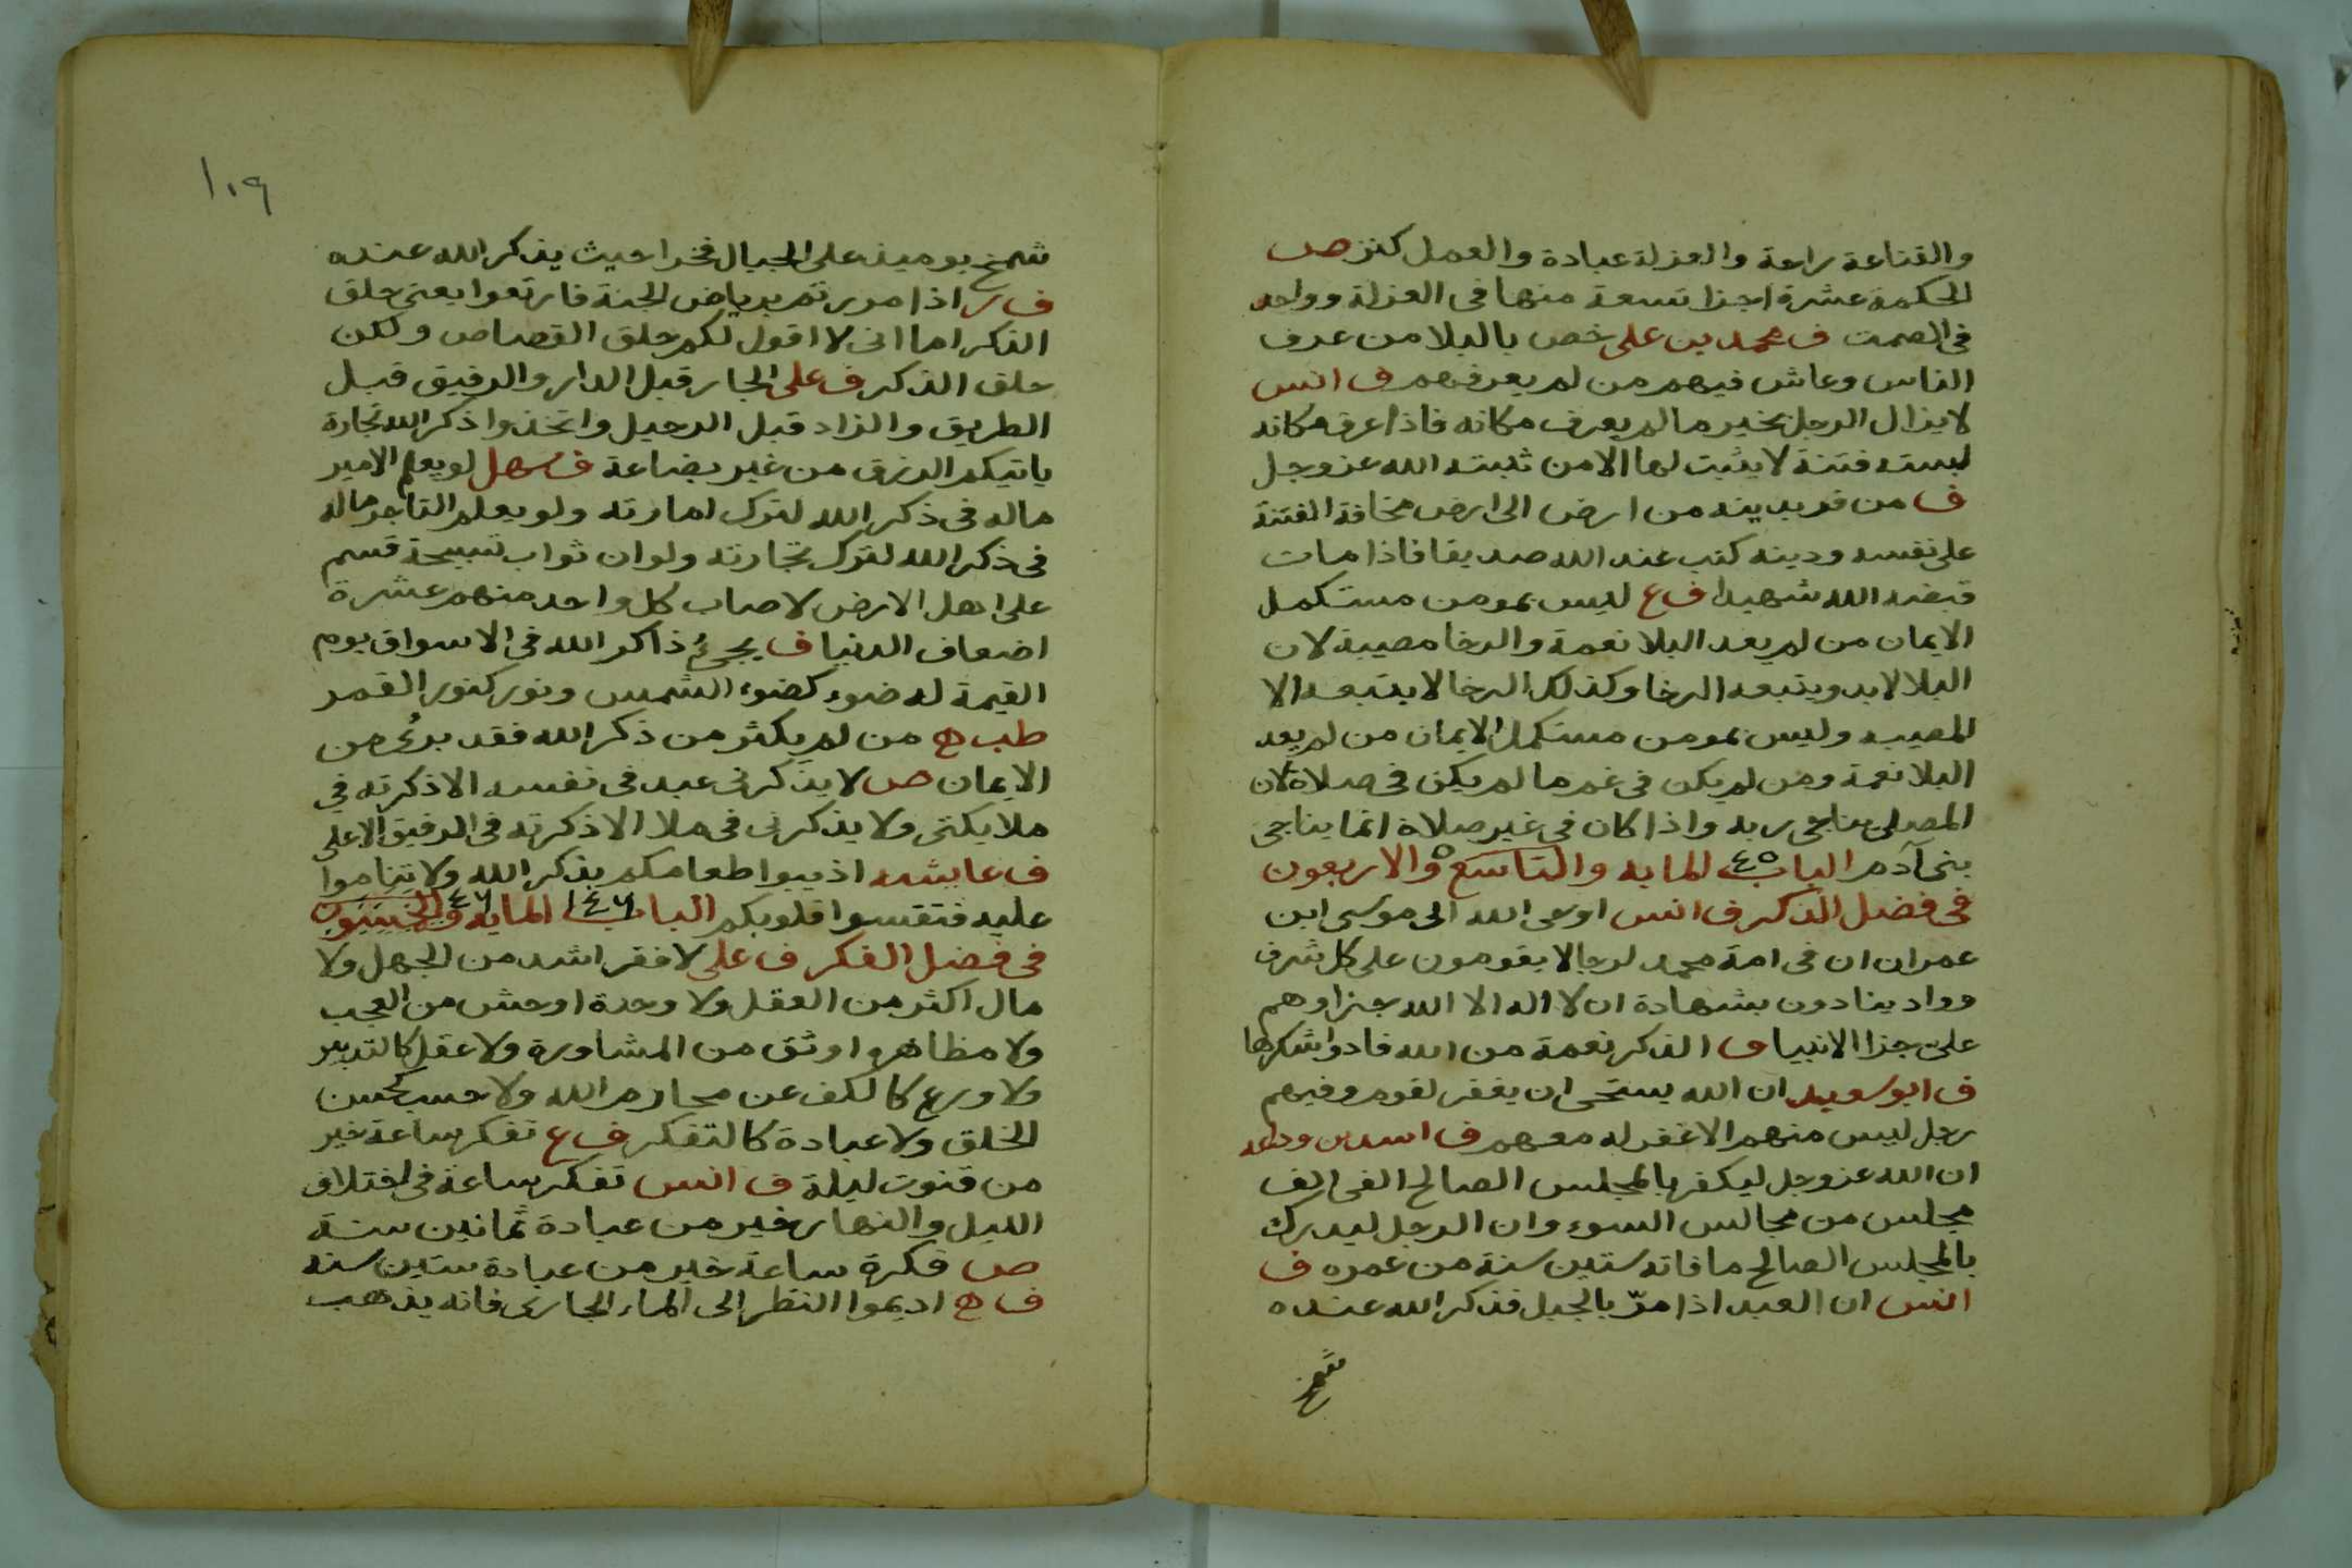 والقناعة راحة والعزلة عبادة والعمل كنز ص
الحكمة عشرة اجزا تسعة منها فى العزلة وواحد
فى الصمت ف محمد بن على خص بالبلا من عرف
الناس وعاش فيهم من لم يعرفهم ف انس
لا يزال الرجل بخير ما لم يعرف مكانه فاذا عرف مكانه
لبسته فتنة لا يثبت لها الا من ثبته الله عز وجل
ف من فر بدينه من ارض الى ارض مخافة الفتنة
على نفسه ودينه كتب عند الله صديقا فاذا مات
قبضه الله شهيدا ف ع ليس بمومن مستكمل
الايمان من لم يعد البلا نعمة والرخا مصيبة لان
البلا لابد ويتبعه الرخا وكذلك الرخا لا يتبعه الا
المصيبه وليس بمومن مستكمل الايمان من لم يعد
البلا نعمة ومن لم يكن فى غم ما لم يكن فى صلاة لان
المصلى يناجى ربه واذا كان فى غير صلاة انما يناجى
بنى آدم الباب ٤٥ المايه والتاسع والاربعون
فى فضل الذكر ف انس اوحى الله الى موسى ابن
عمران ان فى امة محمد لرجالا يقومون على كل شرف
وواد ينادون بشهادة ان لا اله الا الله جزاوهم
على جزا الانبياء ف الذكر نعمة من الله فادوا شكرها
ف ابو سعيد ان الله يستحى ان يغفر لقوم وفيهم
رجل ليس منهم الا غفر له معهم ف اسد بن وداعه
ان الله عز وجل ليكفر بالمجلس الصالح الفى الف
مجلس من مجالس السوء وان الرجل ليدرك
بالمجلس الصالح ما فاته ستين سنة من عمره ف
انس ان العبد اذا مرّ بالجبل فذكر الله عنده
شمخ
١٠٩
شمخ يوميذ على الجبال فخرا حيث يذكر الله عنده
ف ر اذا مررتم برياض الجنة فارتعوا يعنى حلق
الذكر اما انى لا اقول لكم حلق القصاص ولكن
حلق الذكر ف على الجار قبل الدار والرفيق قبل
الطريق والزاد قبل الرحيل واتخذوا ذكر الله تجارة
ياتيكم الرزق من غير بضاعة ف سهل لو يعلم الامير
ماله فى ذكر الله لترك امارته ولو يعلم التاجر ماله
فى ذكر الله لترك تجارته ولو ان ثواب تسبيحة قسم
على اهل الارض لاصاب كل واحد منهم عشرة
اضعاف الدنيا ف يجىءُ ذاكر الله فى الاسواق يوم
القيمة له ضوء كضوء الشمس ونور كنور القمر
طب ه من لم يكثر من ذكر الله فقد برىُ من
الايمان ص لا يذكرنى عبد فى نفسه الا ذكرته فى
ملايكتى ولا يذكرنى فى ملا الا ذكرته فى الرفيق الاعلى
ف عايشه اذيبوا طعامكم بذكر الله ولا تناموا
عليه فتقسوا قلوبكم الباب ١٤٦ المايه والخمسون
فى فضل الفكر ف على لا فقر اشد من الجهل ولا
مال اكثر من العقل ولا وحدة اوحش من العجب
ولا مظاهره اوثق من المشاورة ولا عقل كالتدبير
ولا ورع كالكف عن محارم الله ولا حسب كحسن
الخلق ولا عبادة كالتفكر ف ع تفكر ساعة خير
من قنوت ليلة ف انس تفكر ساعة فى اختلاف
الليل والنهار خير من عبادة ثمانين سنة
ص فكرة ساعة خير من عبادة ستين سنه
ف ه اديموا النظر الى الماء الجارى فانه يذهب